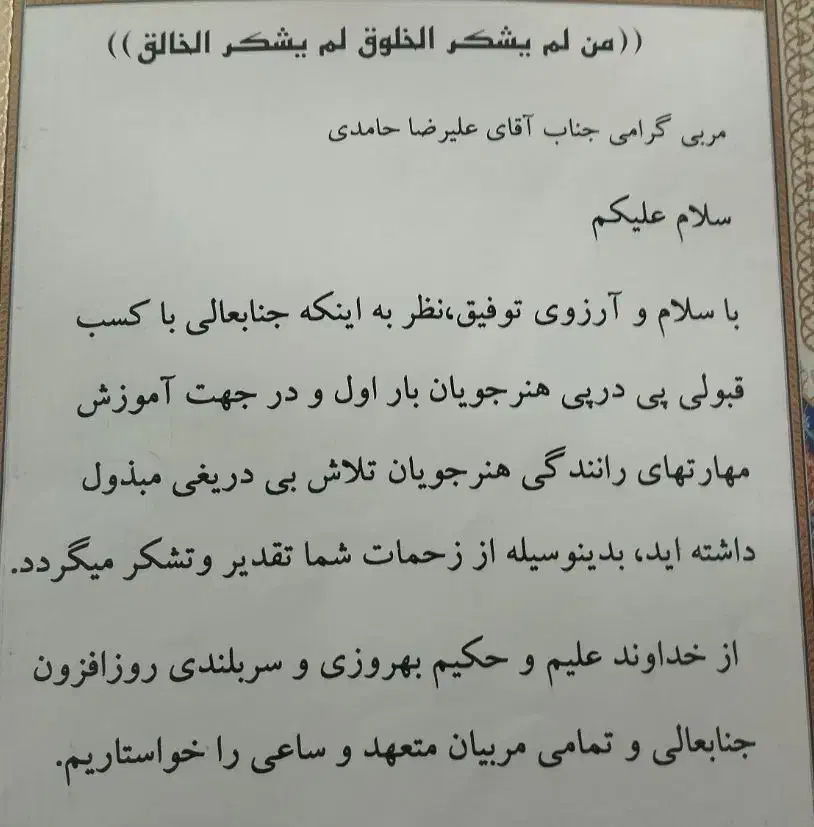 ((من لم يشكر الخلوق لم يشكر الخالق))
مربی گرامی جناب آقای علیرضا حامدی
سلام علیکم
با سلام و آرزوی توفیق،نظر به اینکه جنابعالی با کسب
قبولی پی درپی هنرجویان بار اول و در جهت آموزش
مهارتهای رانندگی هنرجویان تلاش بی دریغی مبذول
داشته اید، بدینوسیله از زحمات شما تقدیر وتشکر میگردد.
از خداوند علیم و حکیم بهروزی و سربلندی روزافزون
جنابعالی و تمامی مربیان متعهد و ساعی را خواستاریم.